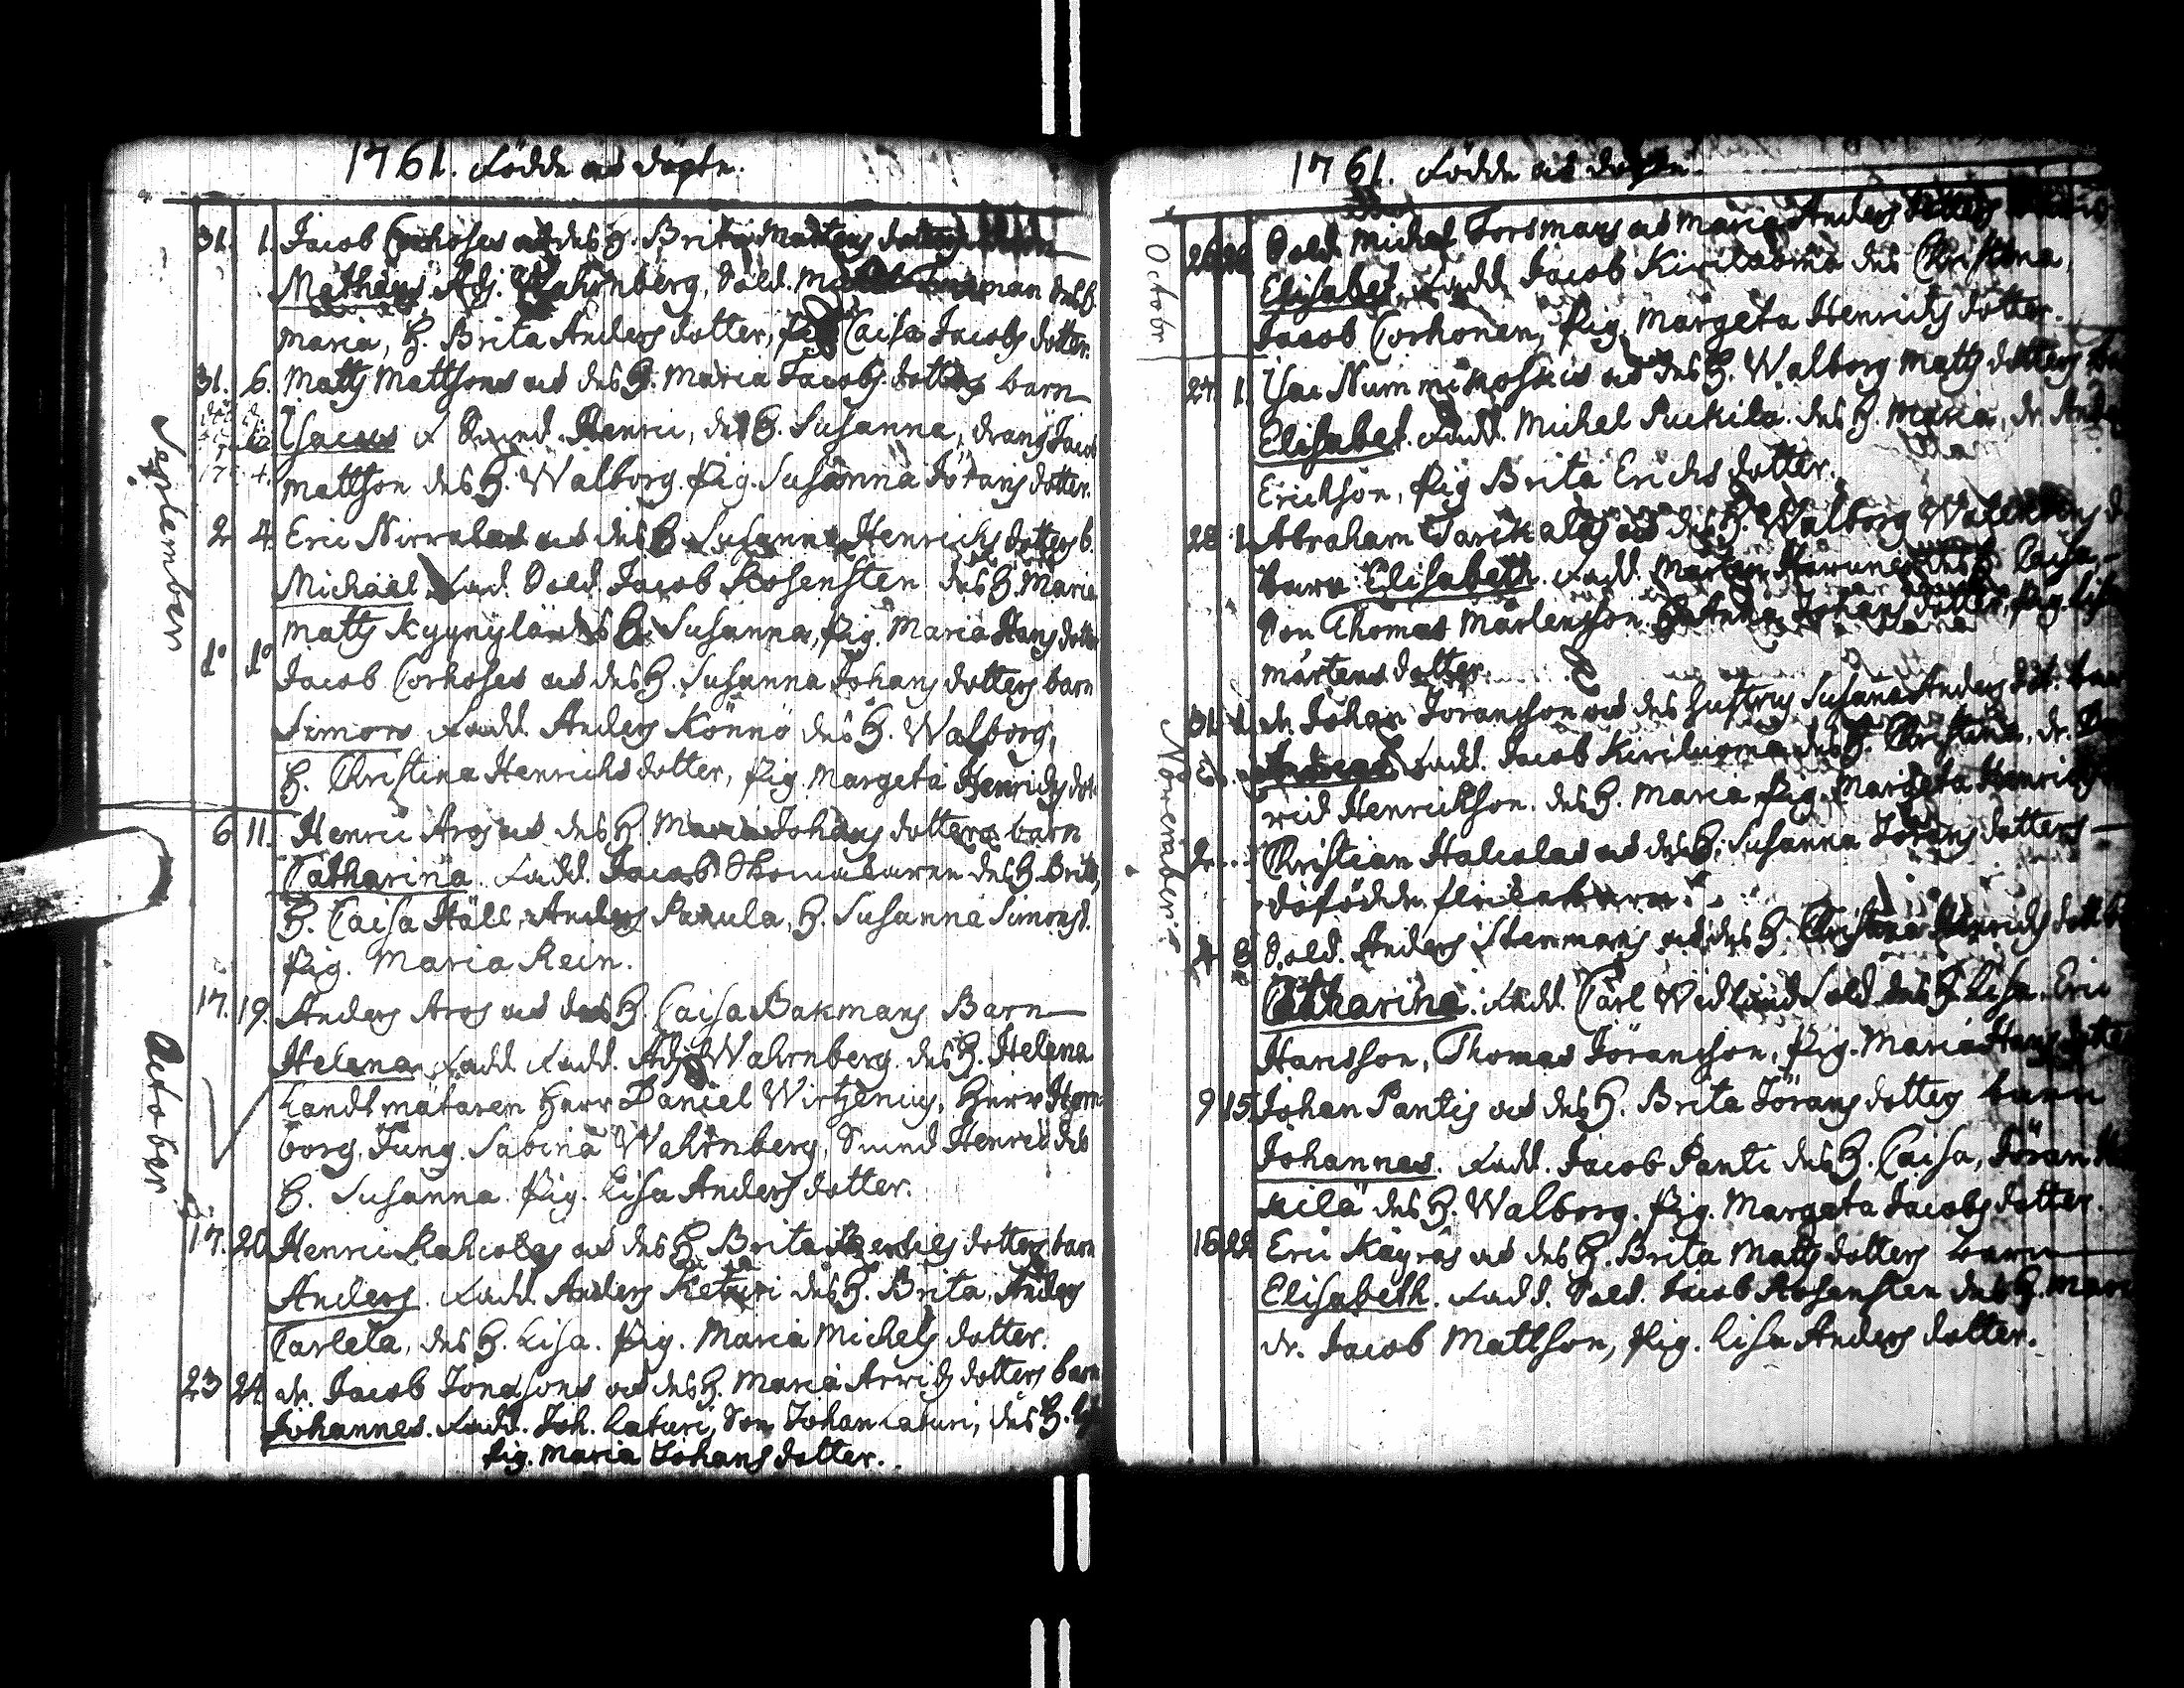 1761. Födde och döpte.
September
31. 1. Jacob Corhoses och des H. Brita Mårtens dotters
Mathæus. Adj. Wahrnberg, Sold. des H.
Maria, H. Brita Anders dotter, Pig. Caisa Jacobs dotter.
31. 6. Matts Mattsons och des H. Maria Jacobs dotters barn
Isacus F Henric, des H. Susanna, dräng Jacob
Mattson des H. Walborg. Pig. Susanna Jörans dotter.
2 4. Eric Nirralas och des H Susanna Henrichs dotters b.
Michael Fad. Sold Jacob Rosensten des H. Maria
Matts Kyynylä des H. Susanna, Pig. Maria Hans dotter
do do Jacob Corhoses och des H. Susanna Johans dotters barn
Simon Fadd. Anders Könnö des H. Walborg,
H. Christina Henrichs dotter, Pig. Margeta Henrichs dot.
October
6 11. Henric Aros och des H. Maria Johans dotters barn
Catharina. Fadd. Jacob des H. Brita,
H. Caisa Häll, Anders Panula, H. Susanna Simonsd.
Pig. Maria Rein.
17. 19. Anders Aros och des H. Caisa Bakmans Barn
Helena Fadd Fadd. Adj Wahrnberg. des H. Helena
Landtmätaren Herr Daniel Wirtzenius, Herr Hem
borg, Jung. Sabina Wahrnberg, Henric des
H. Susanna. Pig. Lisa Anders dotter.
17. 20. Henric Rahcolas och des H Brita dotters barn
Anders. Fadd. Anders Keturi des H. Brita, Anders
Carleta, des H. Lisa. Pig. Maria Michels dotter.
23 24. dr. Jacob Jonasons och des H. Maria Arvids dotters barn
Johannes. Fadd. Joh. Laturi, Son Johan Laturi, des H.
Pig. Maria Johans dotter.
1761. Födde och döpte.
October
26 Sold. Michel Forsmans och Maria Anders dotters
Elisabet. Fadd Jacob Kiriluoma des Christina,
Jacob Corhonen, Pig. Margeta Henrichs dotter.
27. 1. Isac och des H. Walborg Matts dotters
Elisabet. Fadd. Michel Puckila. des H. Maria, dr.
Erickson, Pig Brita Erichs dotter.
28. 1. Abraham och des H. Walborg
barn Elisabeth. Fadd. Mårten des H. Caisa
Son Thomas Mårtensson. H. Anna Johans dotter, Pig. Lisa
Mårtens dotter.
November
31. 1. dr. Johan Joransson och des hustrus Susanna Anders dot. barn
Andreas Fadd. Jacob Kiriluoma des H. Christina, dr.
rid Henrickson. des H. Maria Pig. Margeta
2. Christian Halcolas och des H. Susanna Jörans dotters
dödfödde flickebarn.
4 8 Sold. Anders Stenmans och des H. Christina Henrichs dott b
Catharina. Fadd. Carl Wedlund Sold. des H. Lisa. Eric
Hansson, Thomas Joransson, Pig. Maria Hans dotter
9 15 Johan Pantis och des H. Brita Jörans dotters barn
Johannes. Fadd. Jacob Panti des H. Caisa, Jöran
kila des H. Walborg. Pig. Margeta Jacobs dotter.
16 22 Eric Käyräs och des H. Brita Matts dotters barn
Elisabeth. Fadd. Sold. Jacob Rosensten des H. Mari
dr. Jacob Mattson, Pig. Lisa Anders dotter.